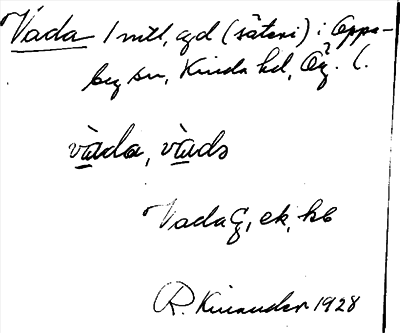 Vada 1 mtl, gd (säteri) i Oppe-
by sn, Kinda hd, Ög. l.
vàda, vàds
Vada G, ek, kb
R. Kinander 1928